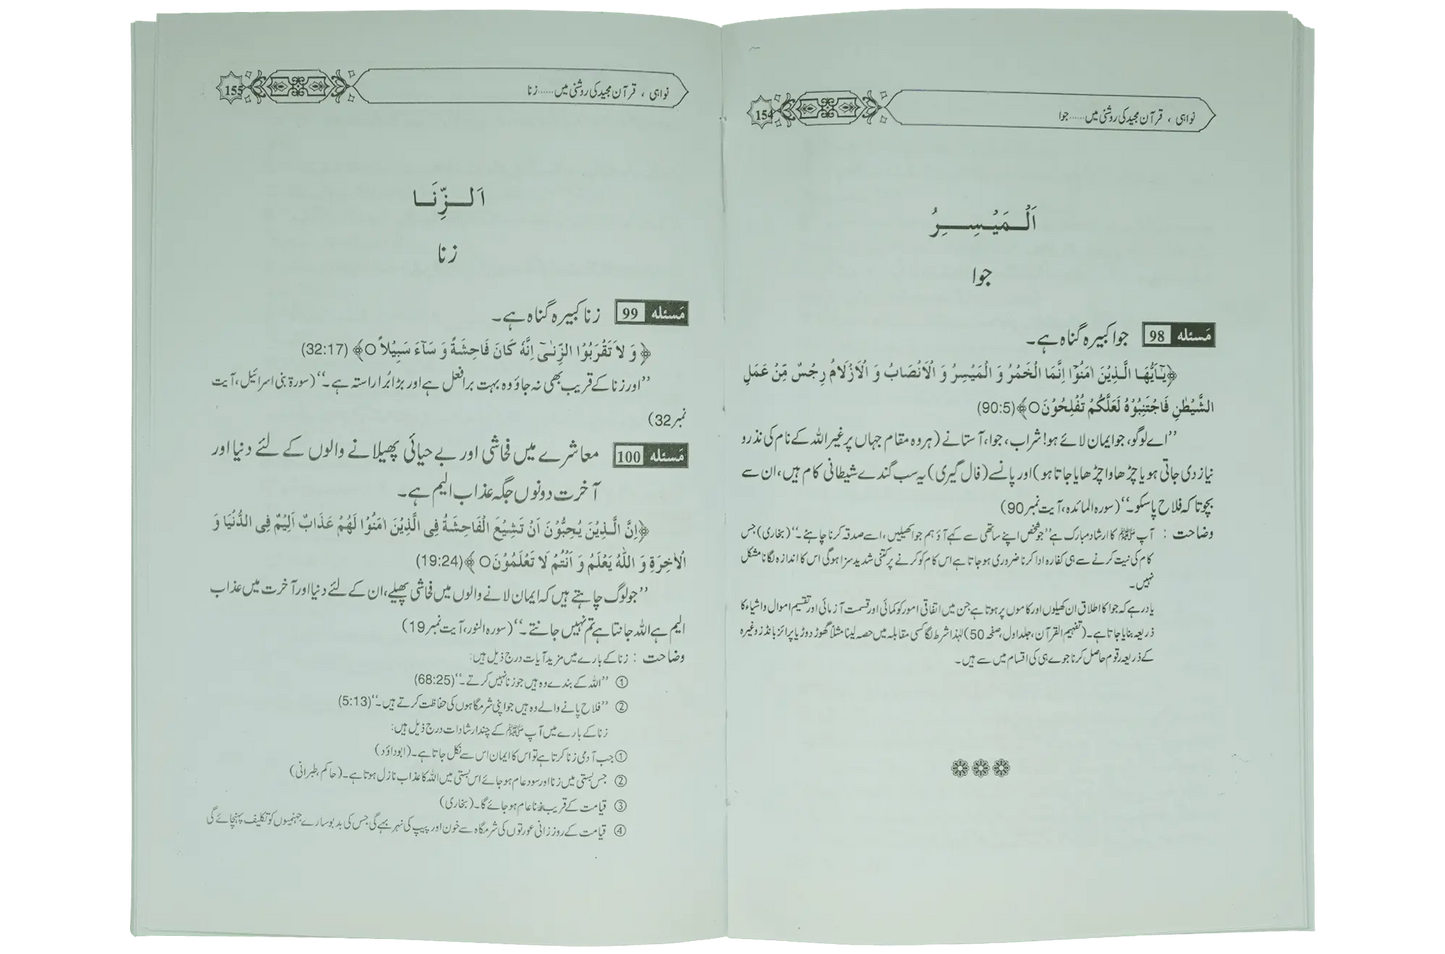 نواہی ، قرآن مجید کی روشنی میں......جوا
154
اَلْـمَیْـسِـــرُ
جوا
مَسئله 98 جوا کبیرہ گناہ ہے۔
﴿یٰٓـاَیُّهَا الَّـذِیْنَ اٰمَنُوْٓا اِنَّمَا الْخَمْرُ وَ الْمَیْسِرُ وَ الْاَنْصَابُ وَ الْاَزْلَامُ رِجْسٌ مِّنْ عَمَلِ
الشَّیْطٰنِ فَاجْتَنِبُوْهُ لَعَلَّکُمْ تُفْلِحُوْنَ○﴾(90:5)
’’اے لوگو، جو ایمان لائے ہو! شراب، جوا، آستانے (ہر وہ مقام جہاں پر غیر اللہ کے نام کی نذر و
نیاز دی جاتی ہو یا چڑھاوا چڑھایا جاتا ہو) اور پانسے (فال گیری) یہ سب گندے شیطانی کام ہیں، ان سے
بچو تاکہ فلاح پا سکو۔‘‘ (سورہ المائدہ، آیت نمبر 90)
وضاحت : آپ ﷺ کا ارشاد مبارک ہے ’’جو شخص اپنے ساتھی سے کہے آؤ ہم جوا کھیلیں، اسے صدقہ کرنا چاہئے۔‘‘ (بخاری) جس
کام کی نیت کرنے سے ہی کفارہ ادا کرنا ضروری ہو جاتا ہے اس کام کو کرنے پر کتنی شدید سزا ہو گی اس کا اندازہ لگانا مشکل
نہیں۔
یاد رہے کہ جوا کا اطلاق ان کھیلوں اور کاموں پر ہوتا ہے جن میں اتفاقی امور کو کمائی اور قسمت آزمائی اور تقسیم اموال و اشیاء کا
ذریعہ بنایا جاتا ہے۔ (تفہیم القرآن، جلد اول، صفحہ 50) لہٰذا شرط لگا کسی مقابلہ میں حصہ لینا مثلاً گھوڑ دوڑ یا پرائز بانڈز وغیرہ
کے ذریعہ رقوم حاصل کرنا جوے ہی کی اقسام میں سے ہیں۔
نواہی ، قرآن مجید کی روشنی میں......زنا
155
اَلـــزِّنَـــا
زنا
مَسئله 99 زنا کبیرہ گناہ ہے۔
﴿ وَ لَا تَقْرَبُوْا الزِّنٰٓی اِنَّهٗ کَانَ فَاحِشَةً وَ سَآءَ سَبِیْلًا ○﴾ (32:17)
’’اور زنا کے قریب بھی نہ جاؤ وہ بہت برا فعل ہے اور بڑا بُرا راستہ ہے۔‘‘ (سورۃ بنی اسرائیل، آیت
نمبر 32)
مَسئله 100 معاشرے میں فحاشی اور بے حیائی پھیلانے والوں کے لئے دنیا اور
آخرت دونوں جگہ عذاب الیم ہے۔
﴿اِنَّ الَّـذِیْنَ یُحِبُّوْنَ اَنْ تَشِیْعَ الْفَاحِشَةُ فِی الَّذِیْنَ اٰمَنُوْا لَهُمْ عَذَابٌ اَلِیْمٌ فِی الدُّنْیَا وَ
الْاٰخِرَةِ وَ اللّٰهُ یَعْلَمُ وَ اَنْتُمْ لَا تَعْلَمُوْنَ○ ﴾(19:24)
’’جو لوگ چاہتے ہیں کہ ایمان لانے والوں میں فحاشی پھیلے، ان کے لئے دنیا اور آخرت میں عذاب
الیم ہے اللہ جانتا ہے تم نہیں جانتے۔‘‘ (سورہ النور، آیت نمبر 19)
وضاحت : زنا کے بارے میں مزید آیات درج ذیل ہیں:
① ’’اللہ کے بندے وہ ہیں جو زنا نہیں کرتے۔‘‘ (68:25)
② ’’فلاح پانے والے وہ ہیں جو اپنی شرمگاہوں کی حفاظت کرتے ہیں۔‘‘ (5:13)
زنا کے بارے میں آپ ﷺ کے چند ارشادات درج ذیل ہیں:
① جب آدمی زنا کرتا ہے تو اس کا ایمان اس سے نکل جاتا ہے۔ (ابوداؤد)
② جس بستی میں زنا اور سود عام ہو جائے اس بستی میں اللہ کا عذاب نازل ہوتا ہے۔ (حاکم، طبرانی)
③ قیامت کے قریب زنا عام ہو جائے گا۔ (بخاری)
④ قیامت کے روز زانی عورتوں کی شرمگاہ سے خون اور پیپ کی نہر بہے گی جس کی بدبو سارے جہنمیوں کو تکلیف پہنچائے گی